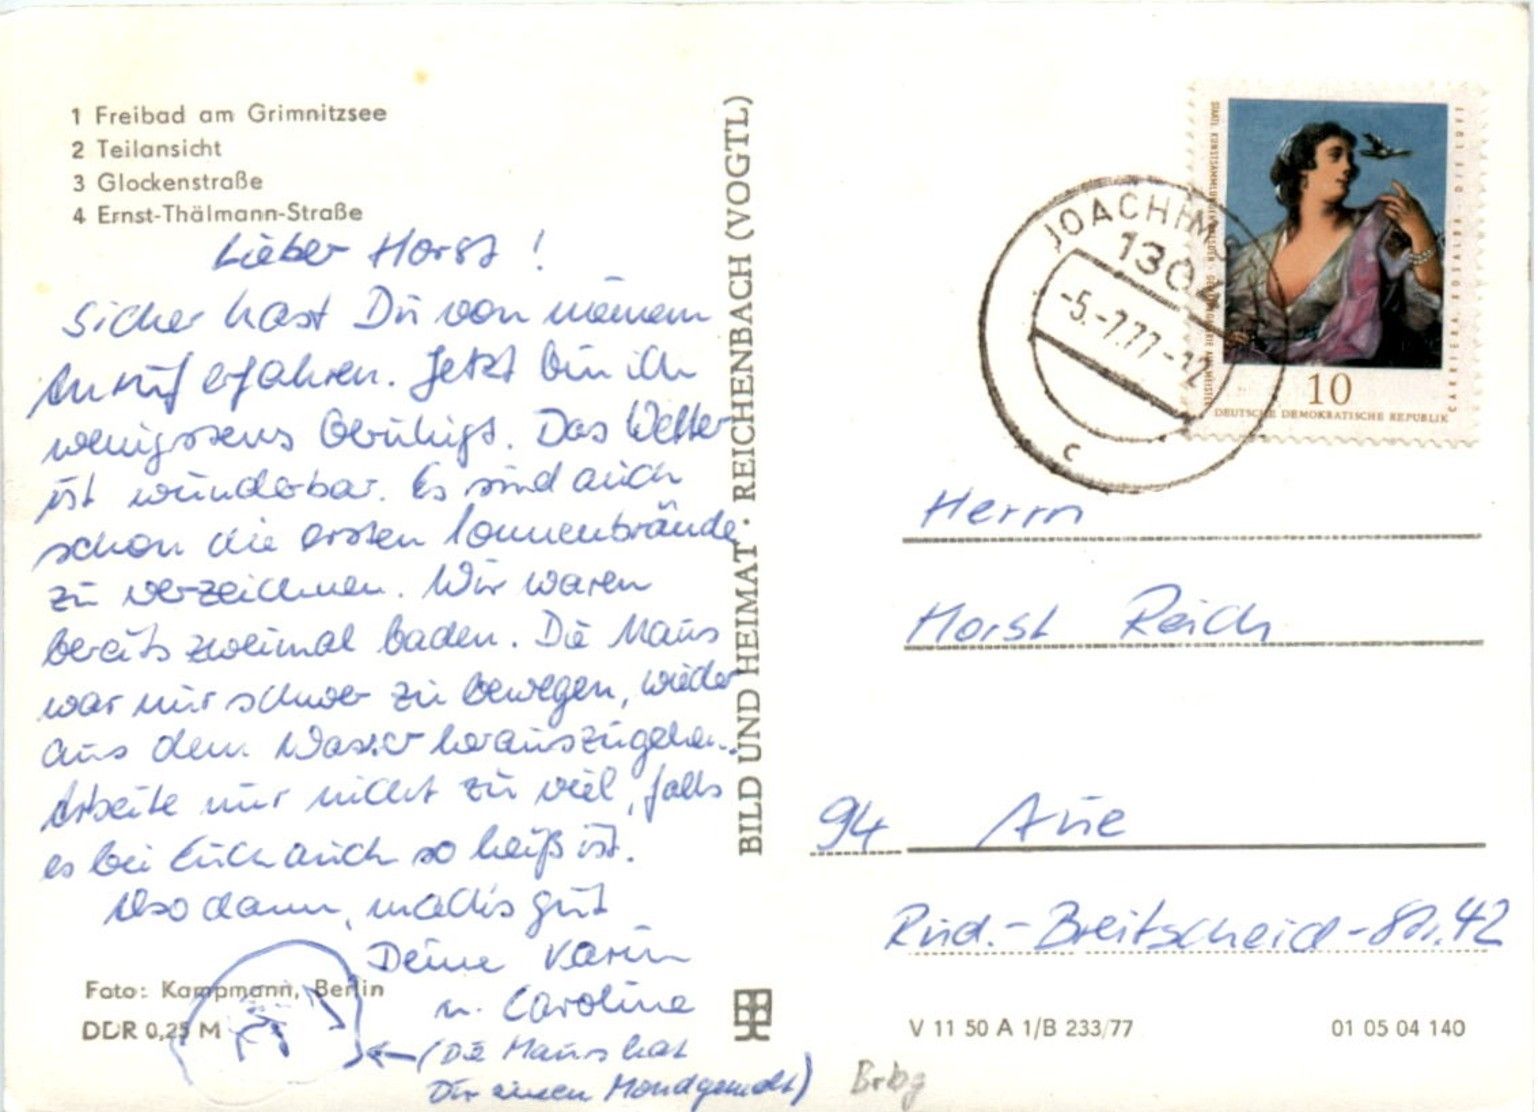 1 Freibad am Grimnitzsee
2 Teilansicht
3 Glockenstraße
4 Ernst-Thälmann-Straße
Lieber Horst!
Sicher hast Du von meinem
Anruf erfahren. Jetzt bin ich
wenigstens beruhigt. Das Wetter
ist wunderbar. Es sind auch
schon die ersten Sonnenbrände
zu verzeichnen. Wir waren
bereits zweimal baden. Die Maus
war nur schwer zu bewegen, wieder
aus dem Wasser herauszugehen.
Arbeite nur nicht zu viel, falls
es bei Euch auch so heiß ist.
Also dann, machs gut
Deine Karin
u. Caroline
(Die Maus hat
Dir einen Mond gemalt)
Foto: Kampmann, Berlin
DDR 0,25 M
BILD UND HEIMAT · REICHENBACH (VOGTL)
JOACHIM
130
-5.-7.77-12
c
STAATL. KUNSTSAMMLUNGEN DRESDEN · GEMÄLDEGALERIE ALTE MEISTER
CARRIERA, ROSALBA · DIE LUFT
10
DEUTSCHE DEMOKRATISCHE REPUBLIK
Herrn
Horst Reich
94 Aue
Rud.-Breitscheid-Str. 42
V 11 50 A 1/B 233/77
01 05 04 140
Brbg